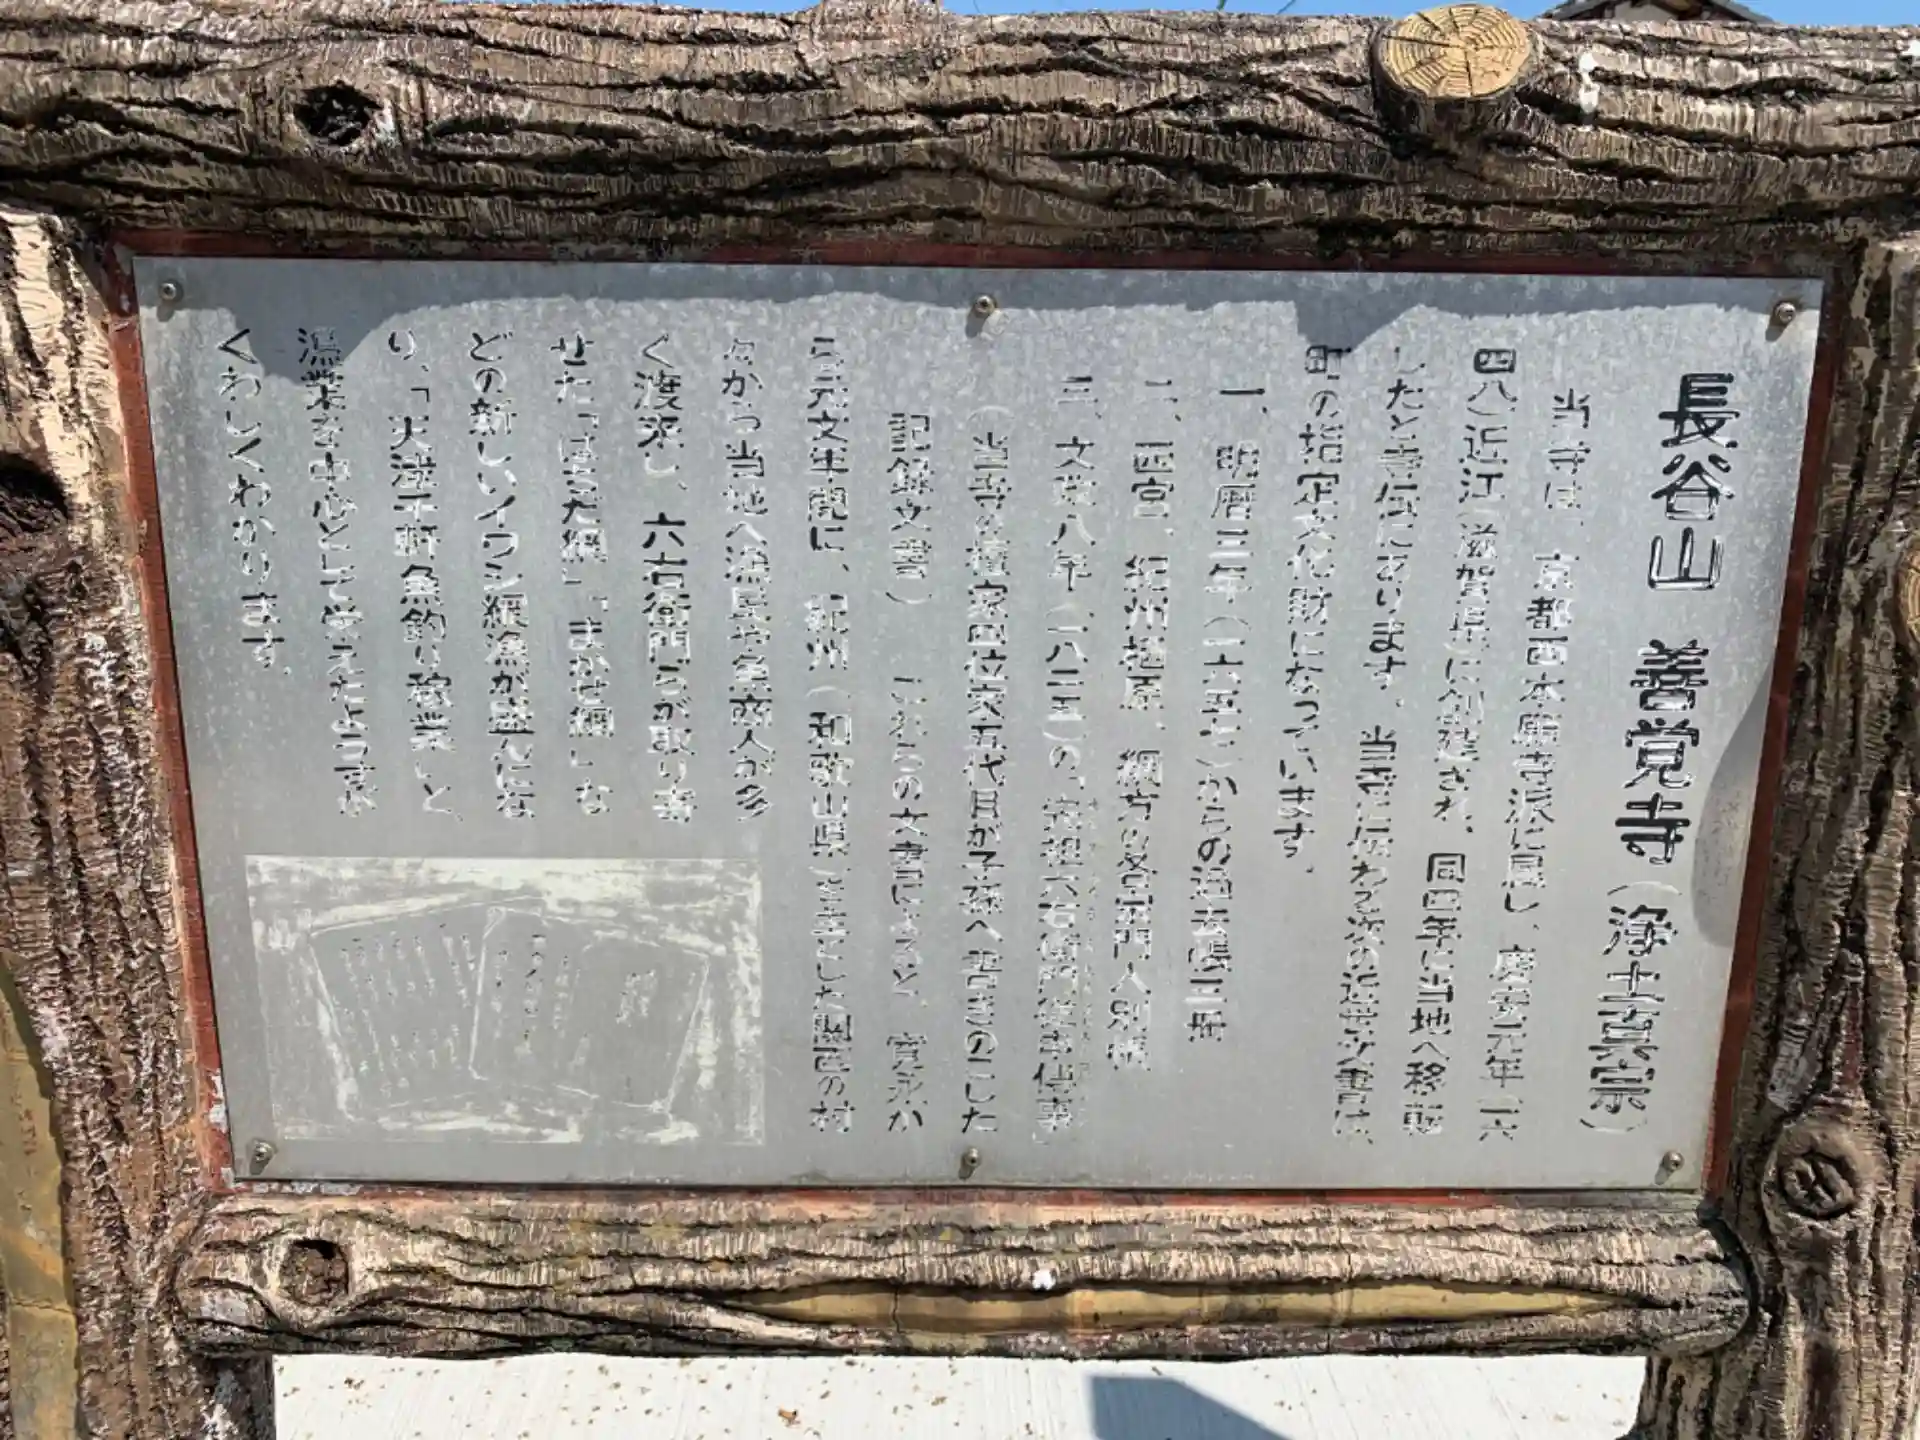 長谷山 善覚寺(浄土真宗)
当寺は、京都西本願寺派に属し、慶安元年(一六
四八)近江(滋賀県)に創建され、同四年に当地へ移転
したと寺伝にあります。当寺に伝わる次の近世文書は、
町の指定文化財になっています。
一、明暦三年(一六五七)からの過去帳三冊
二、西宮、紀州栖原、網方の各宗門人別帳
三、文政八年(一八二五)の、先祖六右衛門 事
(当寺の檀家四位 五代目が子孫へ書きのこした
記録文書) これらの文書によると、寛永か
ら元文年間に、紀州(和歌山県)を主とした関西の村
々から当地へ漁民や魚商人が多
く渡来し、六右衛門らが取り寄
せた「はちだ網」「まかせ網」な
どの新しいイワシ網漁が盛んにな
り、「天津千軒魚釣り稼業」と、
漁業を中心として栄えたようすが
くわしくわかります。